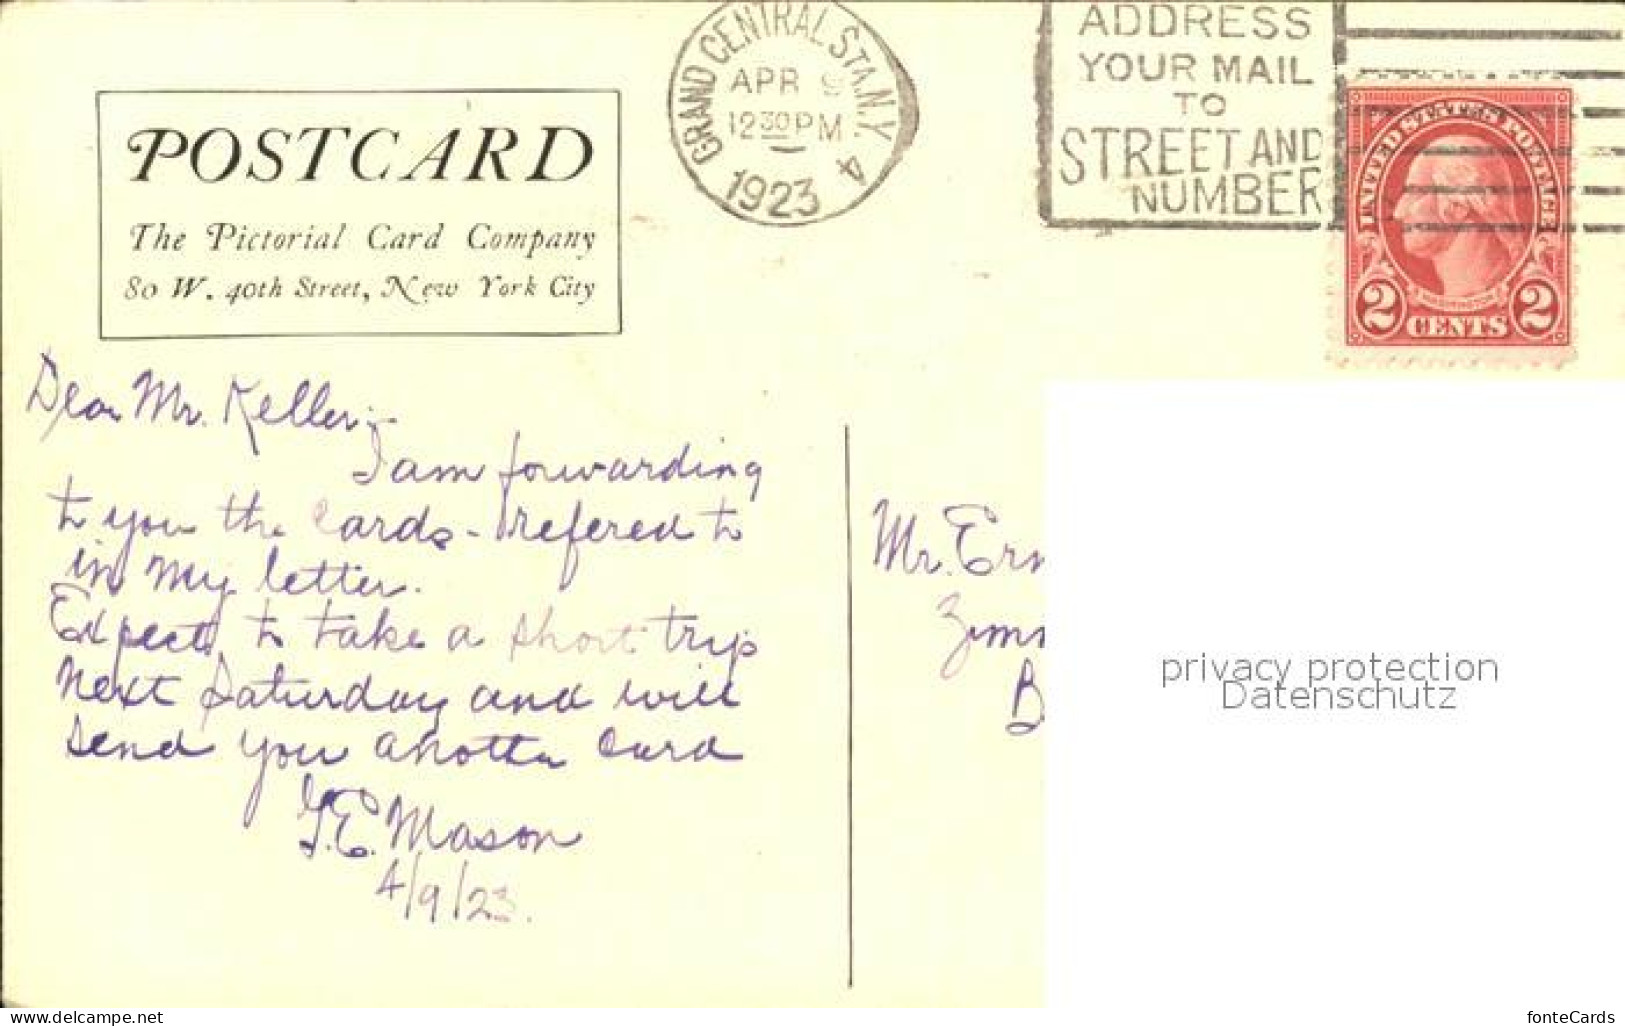 GRAND CENTRAL STA. N.Y.
APR 9
12 30 PM
1923
4
ADDRESS
YOUR MAIL
TO
STREET AND
NUMBER
UNITED STATES POSTAGE
WASHINGTON
2 CENTS 2
POSTCARD
The Pictorial Card Company
80 W. 40th Street, New York City
Dear Mr. Keller:-
I am forwarding
to you the cards - refered to
in my letter.
Expect to take a short trip
next Saturday and will
send you another card
G.E. Mason
4/9/23.
Mr. Ern
Zimm
B
privacy protection
Datenschutz
www.delcampe.net
fonteCards